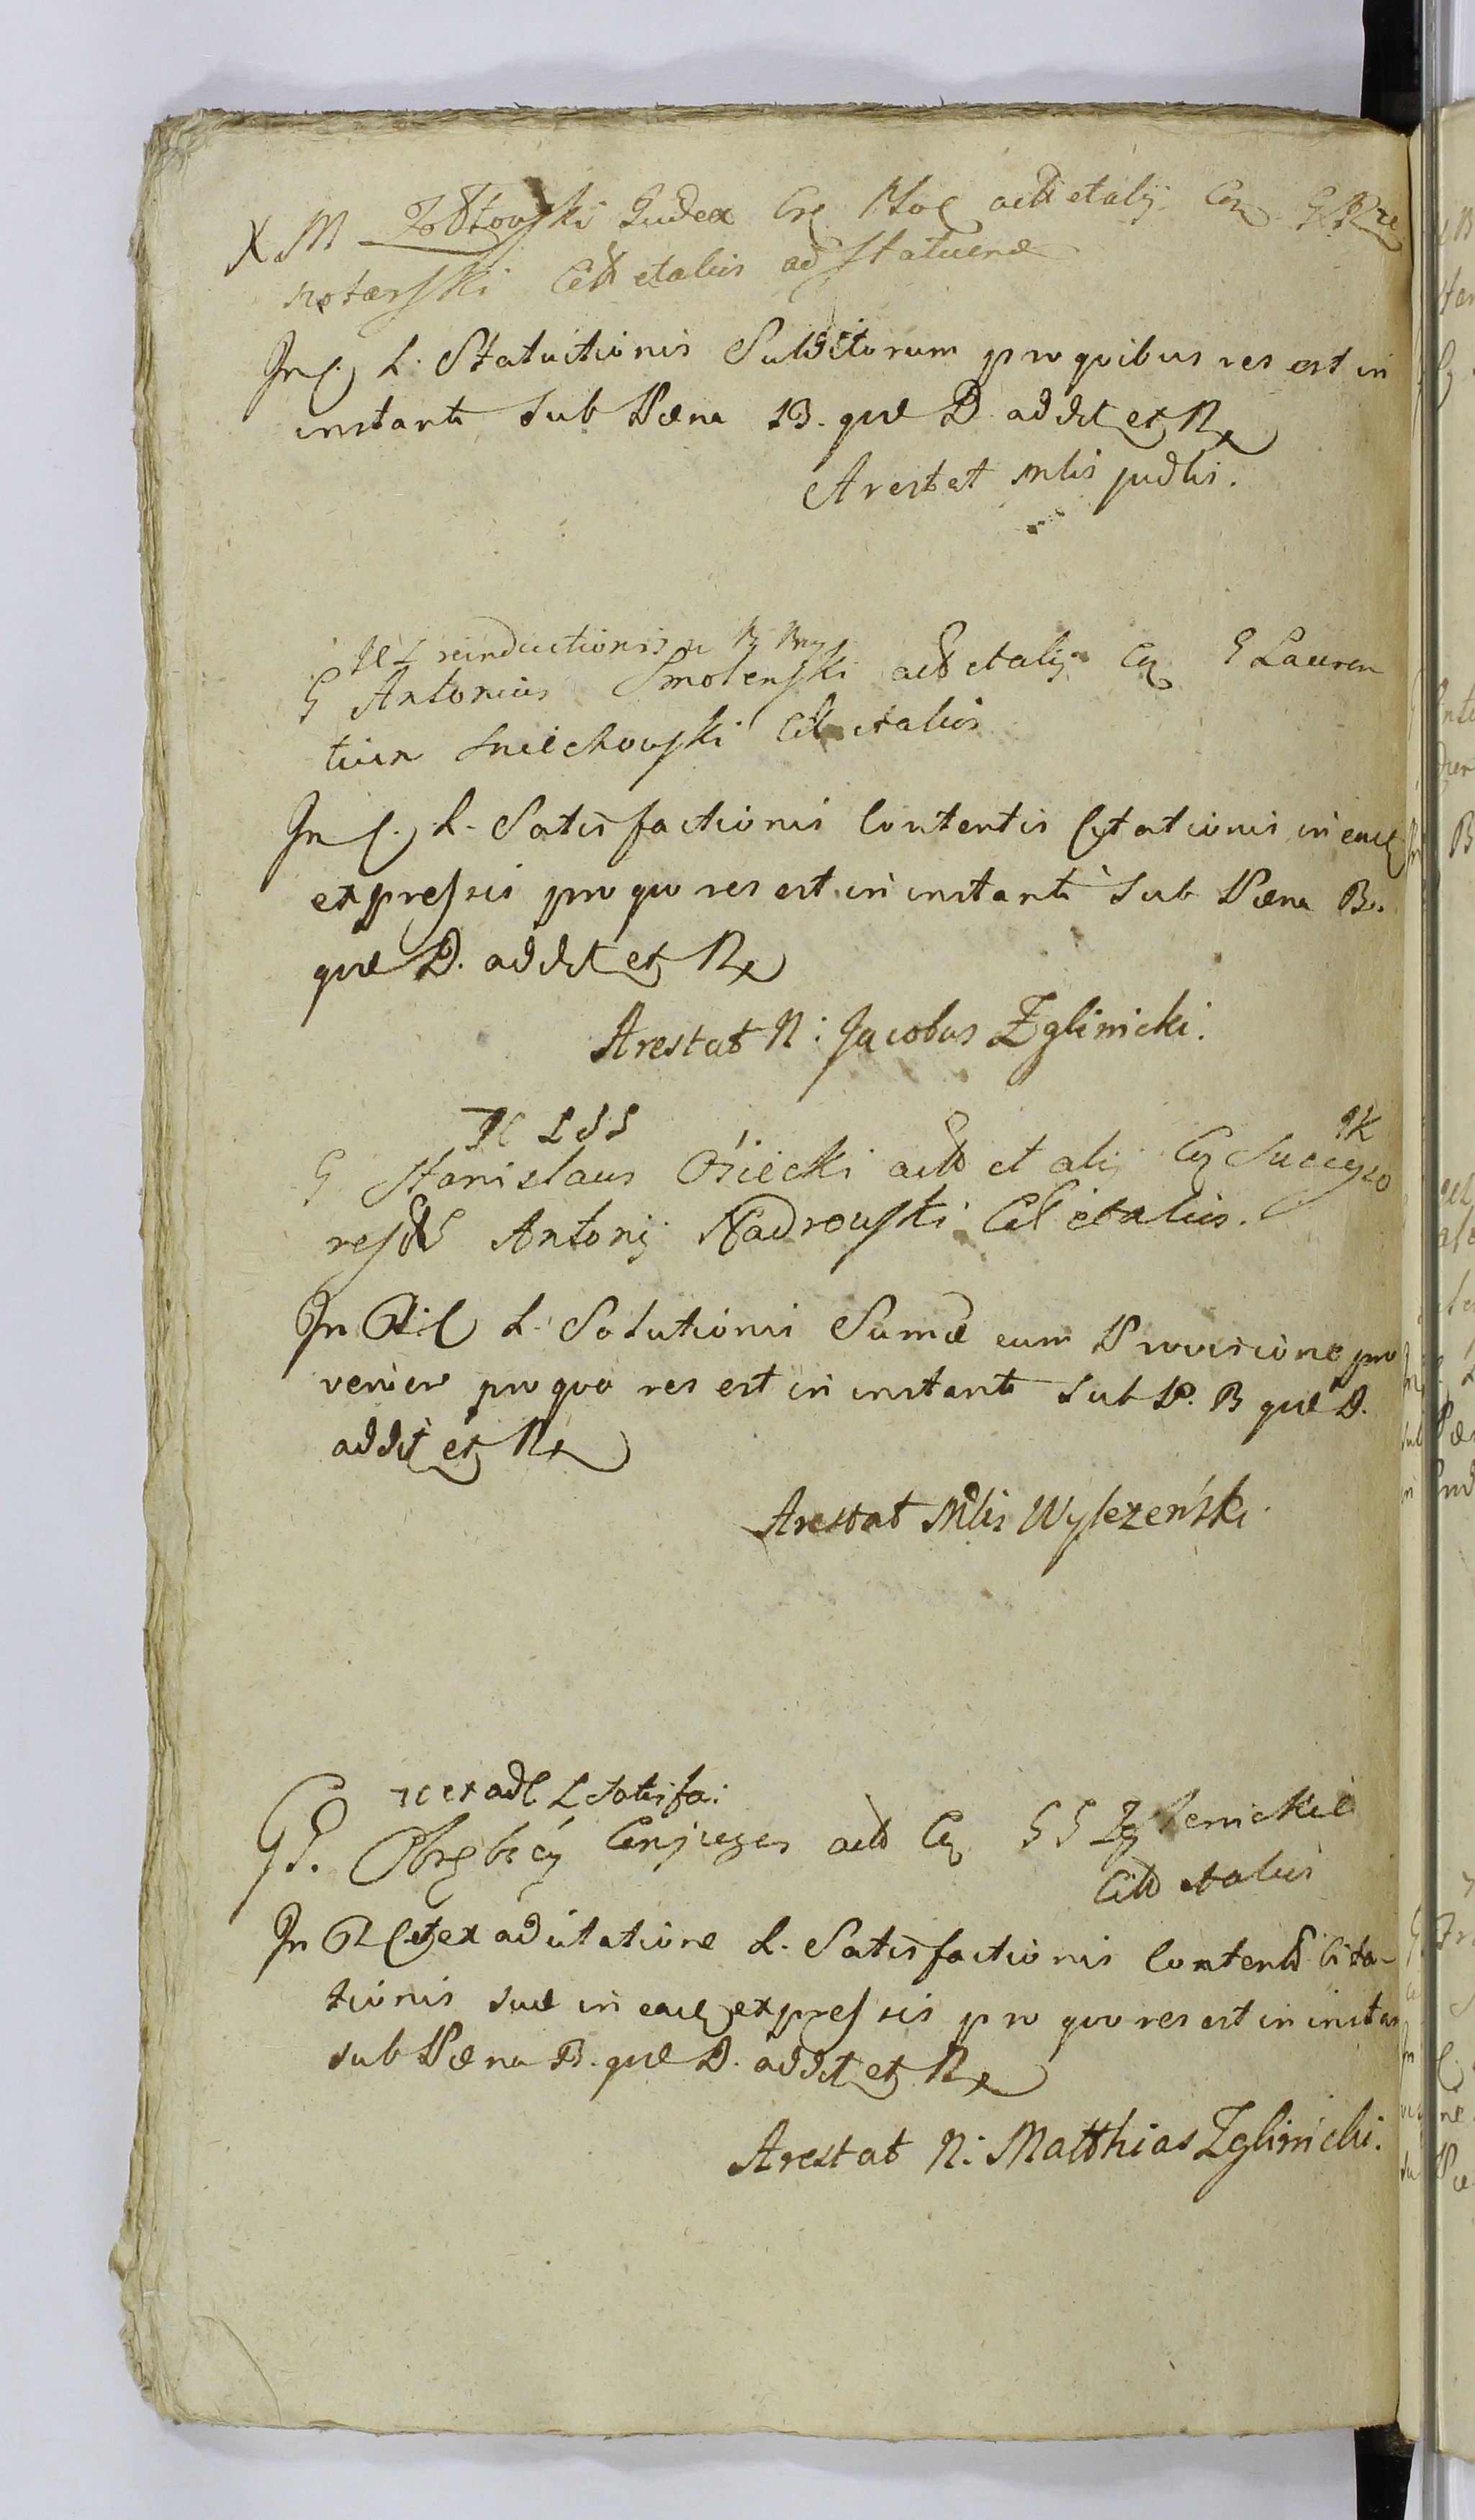 X M Zółtowski Judex Crς Ploc actt et alÿ Cu G
notarski Citt et aliis ad Statuend
In C. L. Statuitionis Subditorum pro quibus res est in
instanti sub Pæna B. quæ D. addit et R
Arestat Mlis judlis.
L reinductionis
G Antonius Smolenski actt et alÿ Cu G Lauren
tium Sniechowski Citt et aliis
In C. L. Satisfactionis Contentis Cytationis in eaus
expressis pro quo res est in instanti sub Pæna B.
quæ D. addit et R
Arestat N: Jacobus Zglinicki.
G Stanislaus Osiecki actt et alÿ Cu Successo
res Antonÿ Nadrowski Citt et aliis.
In L. Solutionis Sumæ cum Provisione pro
venien pro quo res est in instanti sub P. B quæ D.
addit et R
Arestat Mlis Wylezeński
et adC L Satisfa:
GG. Obrębscÿ Conjuges actt Cu GG Zglenickie
Citt et aliis
In et ex adcitatione L. Satisfactionis Content Cita-
tionis suæ in eaus expressis pro quo res est in instan
sub Pæna B. quæ D. addit et R
Arestat N: Matthias Zglinicki.